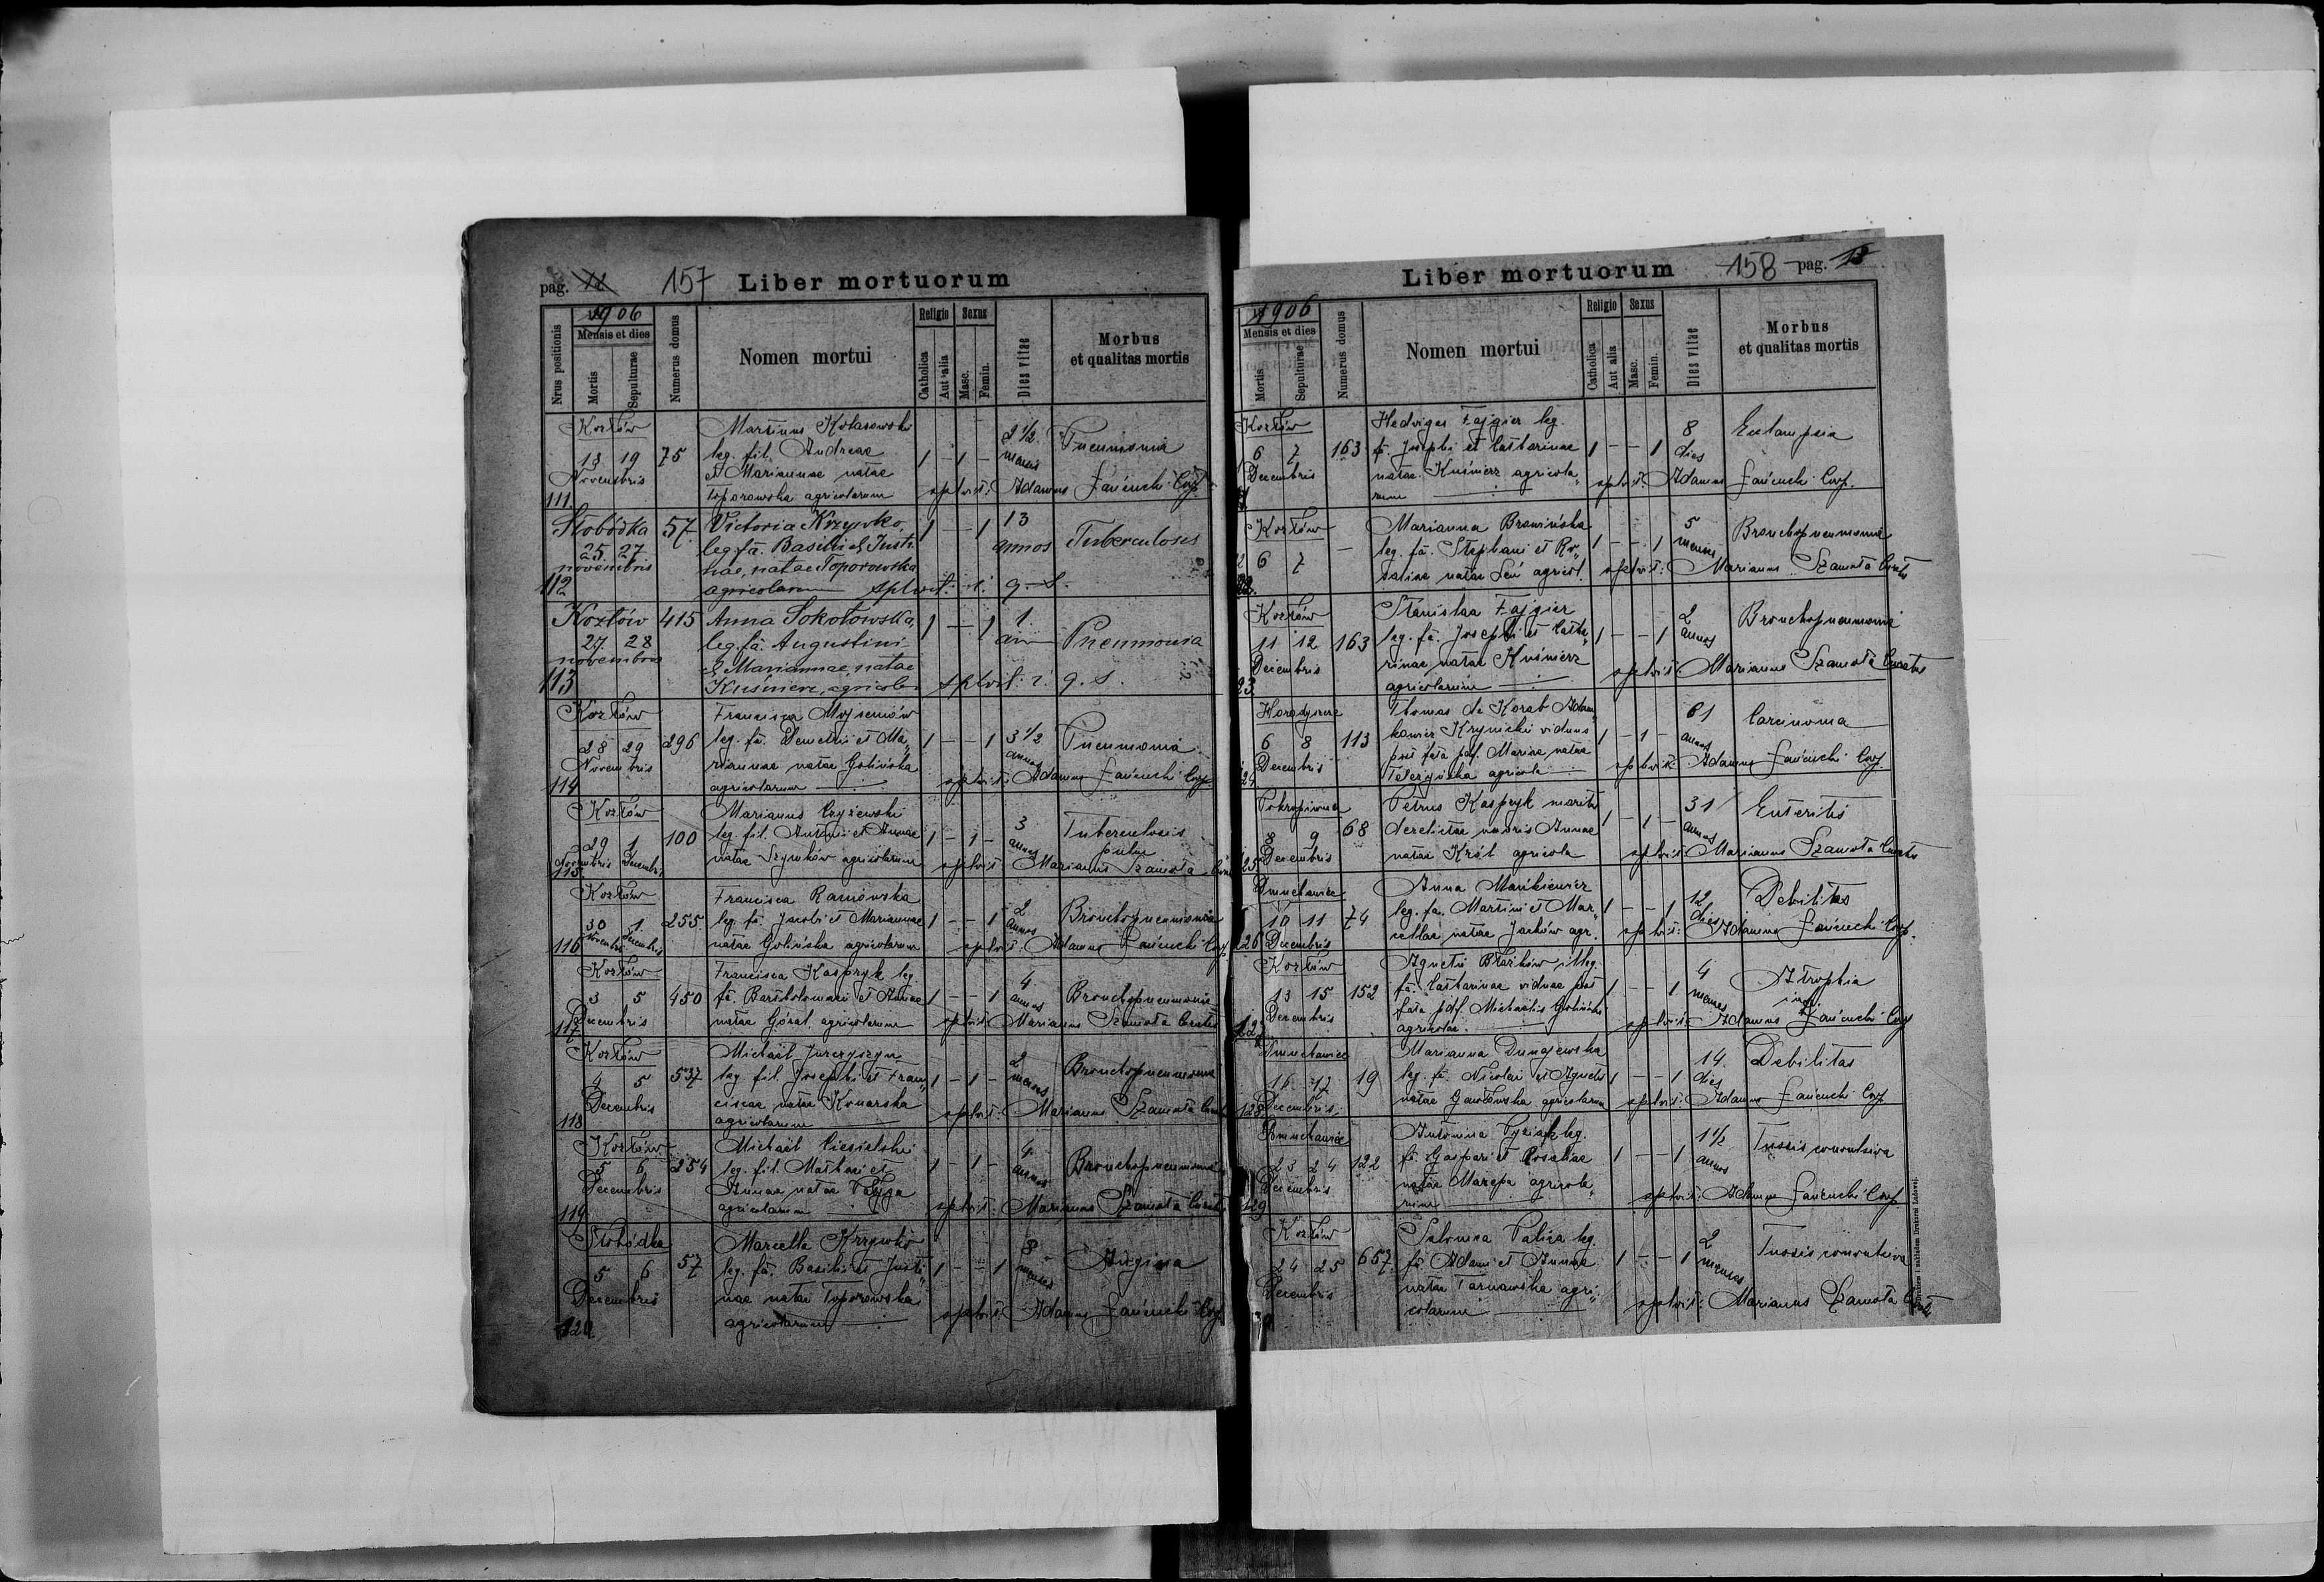 pag. 12 157 Liber mortuorum
Nrus positionis
1906
Mensis et dies
Mortis
Sepulturae
Numerus domus
Nomen mortui
Religio
Catholica
Aut alia
Sexus
Masc.
Femin.
Dies vitae
Morbus
et qualitas mortis
Kozłów Martinus Kołasowski 2 1/2
13 19 75 leg. fil. Andreae 1 - 1 - menses Pneumonia
Novembris et Mariannae natae
111 Toporowska agricolarum spLvit: Adamus Łańcucki Coop.
Słobódka 57 Victoria Krzywko, 1 - - 1 13
25. 27. leg. fa. Basilii et Justi- annos Tuberculosis
novembris nae, natae Toporowska
112 agricolarum spLvit: i: q. s.
Kozłów 415 Anna Sokołowska, 1 - - 1 1.
27. 28 leg. fa. Augustini Pneumonia
novembris et Mariannae, natae
113 Kuśnierz, agricolar spLvit: i: q. s.
Kozłów Francisca Mojseniów
28 29 296 leg. fa. Demetrii et Ma 1 - - 1 3 1/2 Pneumonia
Novembris riannae natae Golińska annos
114 agricolarum spLvit: Adamus Łańcucki Coop.
Kozłów Marianus Czyżewski 3
29 1 100 leg. fil. Antonii et Annae 1 - 1 - annos Tuberculosis
Novembris Decembris natae Szynków agricolarum pulm
115. spLvit Marianus Szamota
Kozłów Francisca Ramowska 2
30 1 255. leg. fa. Jacobi et Mariannae 1 - - 1 annos Bronchopneumonia
116 Novembris Decembris natae Golińska agricolarum spLvit: Adamus Łańcucki Coop
Kozłów Francisca Kaspryk leg 4
3 5 450 fa. Bartholomaei et Annae 1 - - 1 annos Bronchopneumonia
117 Decembris natae Góral agricolarum spLvit: Marianus Szamota Curatus
Kozłów Michaël Jurczyszyn 2
4 5 537 leg. fil. Josephi et Fran 1 - 1 - menses Bronchopneumonia
Decembris ciscae natae Konarska spLvit: Marianus Szamota
118 agricolarum
Kozłów Michaël Ciesielski 4
5 6 254 leg. fil. Mathaei et 1 - 1 - annos Bronchopneumonia
Decembris Annae natae
119 agricolarum spLvit: Marianus Szamota
Słobódka Marcella Krzywko 8
5 6 57 leg. fa. Basilii et Justi 1 - - 1 menses Angina
Decembris nae natae Toporowska
120 agricolarum spLvit: Adamus Łańcucki Coop
Liber mortuorum 158 pag. 13
1906
Mensis et dies
Mortis
Sepulturae
Numerus domus
Nomen mortui
Religio
Catholica
Aut alia
Sexus
Masc.
Femin.
Dies vitae
Morbus
et qualitas mortis
Kozłów Hedviges Fajgier leg. 8 Eclampsia
6 7 163 fa. Josephi et Catharinae 1 - - 1 dies
Decembris natae Kuśnierz agricola
rum spLvit: Adamus Łańcucki Coop.
Kozłów Marianna Browińska 5 Bronchopneumonia
6 7 - leg. fa. Stephani et Ro 1 - - 1 menses
saliae natae Leń agricol. spLvit: Marianus Szamota
Kozłów Stanislaa Fajgier 2 Bronchopneumonia
11 12 163 leg. fa. Josephi et Catha 1 - - 1 annos
Decembris rinae natae Kuśnierz
23. agricolarum spLvit Marianus Szamota Curatus
Horodyszcze Thomas de Korab Adam 61 Carcinoma
6 8 113 kowicz Krynicki viduus 1 - 1 - annos
Decembris post fata pdf. Mariae natae
24 agricola spLvit: Adamus Łańcucki Coop.
Pokropiwna Petrus Kaspryk marit 31 Enteritis
8 9 68 derelictae uxoris Annae 1 - 1 - annos
25 Decembris natae Król agricola spLvit: Marianus Szamota
Dmuchawiec Anna Mańkiewicz 12 Debilitas
10 11 74 leg. fa. Martini et Mar 1 - - 1 dies
126 Decembris cellae natae Jacków agr. spLvit: Adamus Łańcucki Coop.
Kozłów Agnetis Błażków illeg. 4 Atrophia
13 15 152 fa. Catharinae viduae post 1 - - 1 menses inf
Decembris fata pdf. Michaëlis Golińska
127 agricolae. spLvit: Adamus Łańcucki Coop
Dmuchawiec Marianna Dunajewska 14. Debilitas
16 17 19 leg. fa. Nicolai et Agnetis 1 - - 1 dies
128 Decembris natae Gawłowska agricolarum spLvit: Adamus Łańcucki Coop
Dmuchawiec Antonina Pyziak leg. 1 1/2 Tussis convulsiva
23 24 122 fa. Gaspari et Rosaliae 1 - - 1 annos
Decembris natae Mazepa agricola
129 rum spLvit: Adamus Łańcucki Coop
Kozłów Salomea Palica leg. 2 Tussis convulsiva
24 25 657. fa. Adami et Annae 1 - - 1 menses
Decembris natae Tarnawska agri
30 colarum spLvit: Marianus Szamota
i nakładem Drukarni Ludowej.